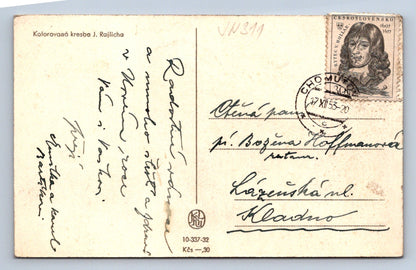 Kolorovaná kresba J. Rajlicha
JN311
ČESKOSLOVENSKO
1607
1677
CHOMUTOV
17 XII 55-20
Radostné vánoce
a mnoho štěstí a zdraví
v Novém roce
Vám i Vašim
přejí
Ctěná paní
pí. Božena Hoffmannová
Lázeňská ul.
Kladno
10-337-32
Kčs —,30